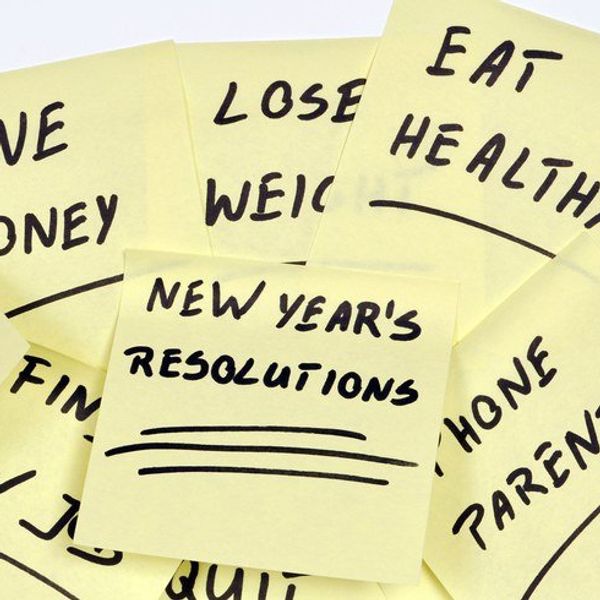 VE
ONEY
LOSE
WEIG
EAT
HEALTHY
NEW YEAR'S
RESOLUTIONS
FIN
JOB
PHONE
PARENT
QUIT